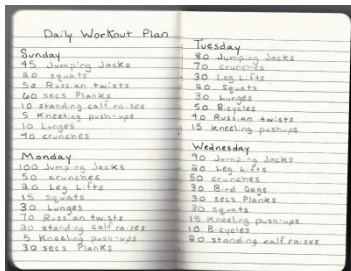 Daily Workout Plan
Sunday
45 Jumping Jacks
20 squats
50 Russian twists
60 secs Planks
10 standing calf raises
5 Kneeling push-ups
10 Lunges
40 crunches
Monday
100 Jumping Jacks
50 crunches
20 Leg Lifts
15 squats
30 Lunges
70 Russian twists
20 standing calf raises
5 Kneeling push-ups
30 secs Planks
Tuesday
80 Jumping Jacks
70 crunches
30 Leg Lifts
20 squats
30 Lunges
50 Bicycles
40 Russian twists
15 Kneeling pushups
Wednesday
90 Jumping Jacks
20 Leg Lifts
50 crunches
30 Bird Dogs
30 secs Planks
30 squats
15 Kneeling push-ups
10 Bicycles
20 standing calf raises